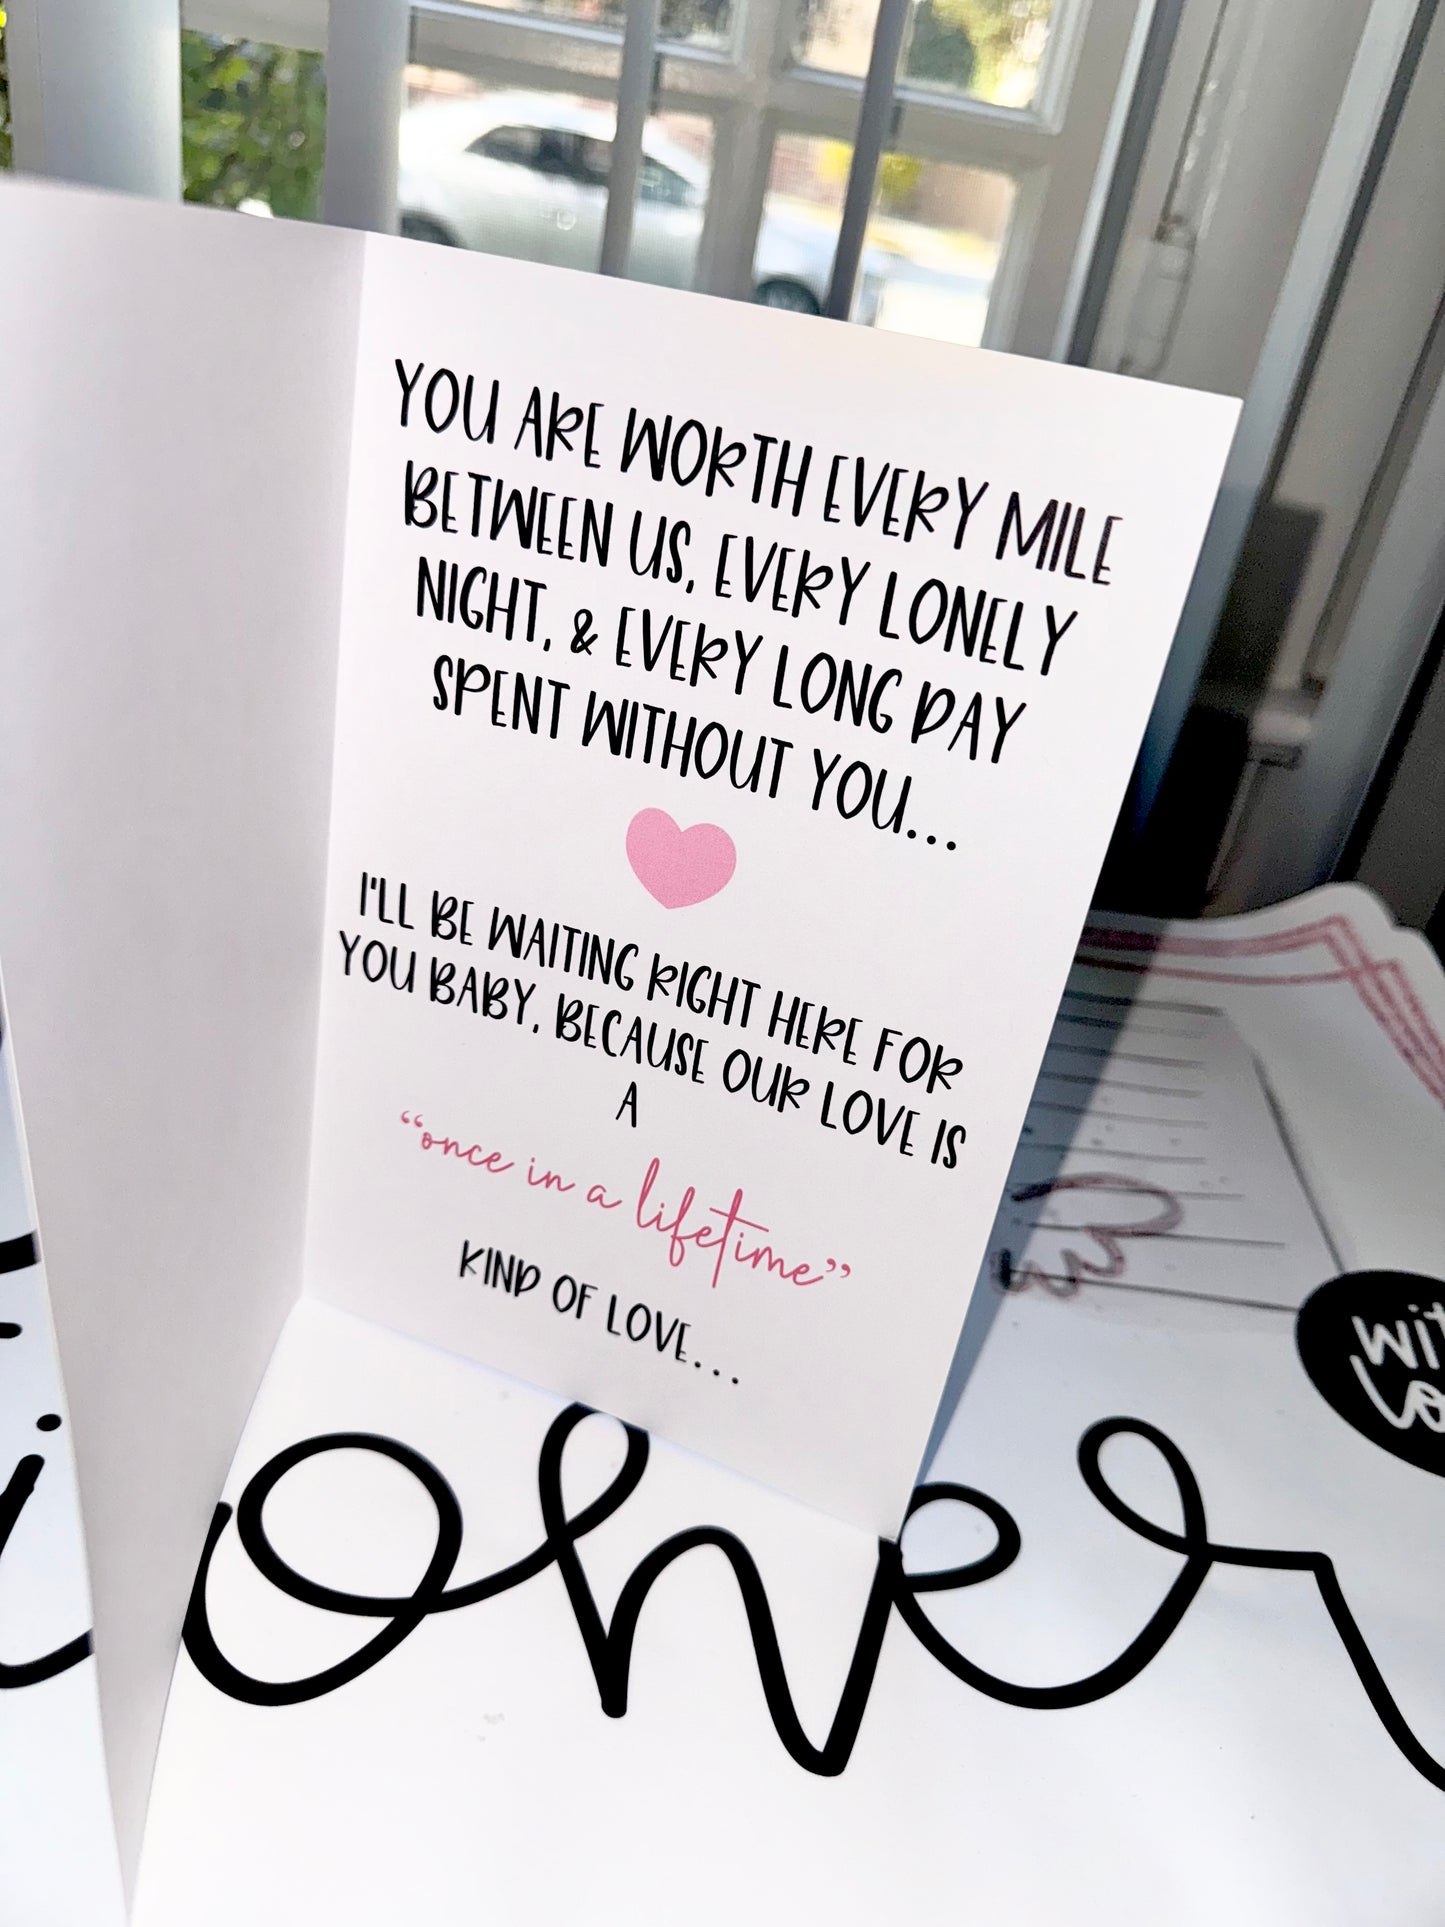 YOU ARE WORTH EVERY MILE
BETWEEN US, EVERY LONELY
NIGHT, & EVERY LONG DAY
SPENT WITHOUT YOU...
I'LL BE WAITING RIGHT HERE FOR
YOU BABY, BECAUSE OUR LOVE IS
A
“once in a lifetime”
KIND OF LOVE...